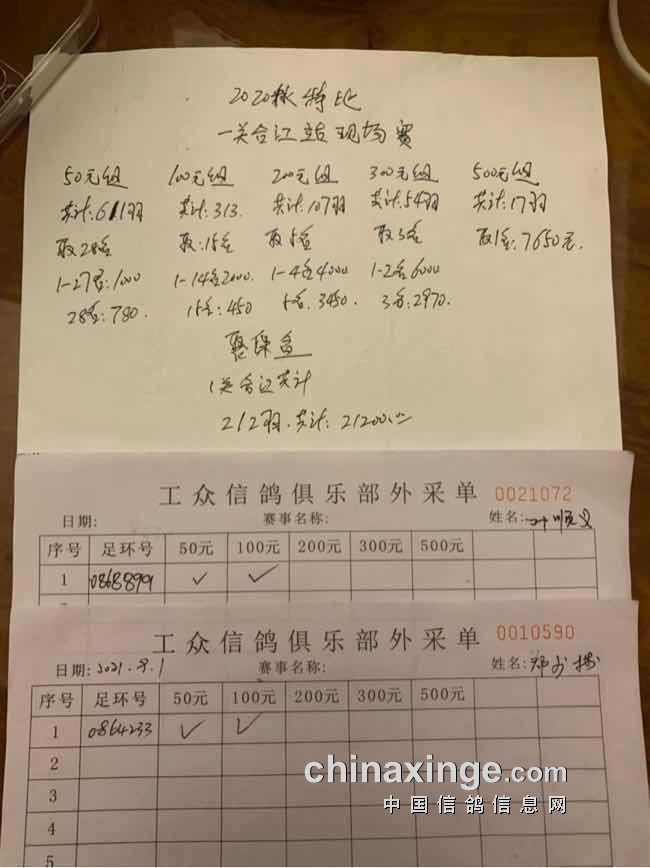 2020秋特比
一关合江站现场赛
50元组 100元组 200元组 300元组 500元组
共计:611羽 共计:313. 共计:107羽 共计:54羽 共计:17羽
取28名 取:15名 取5名 取3名 取1名:7650元.
1-27名:1000 1-14名2000. 1-4名4000 1-2名6000
28名:780. 15名:450 5名.3450. 3名:2970.
聚保盆
1关合江共计
212羽.共计:21200
工众信鸽俱乐部外采单 0021072
日期: 赛事名称: 姓名:叶顺义
序号 足环号 50元 100元 200元 300元 500元
1 0868899 ✓ ✓
工众信鸽俱乐部外采单 0010590
日期:2021.9.1 赛事名称: 姓名:郑
序号 足环号 50元 100元 200元 300元 500元
1 0864233 ✓ ✓
2
3
4
5
chinaxinge.com
中国信鸽信息网